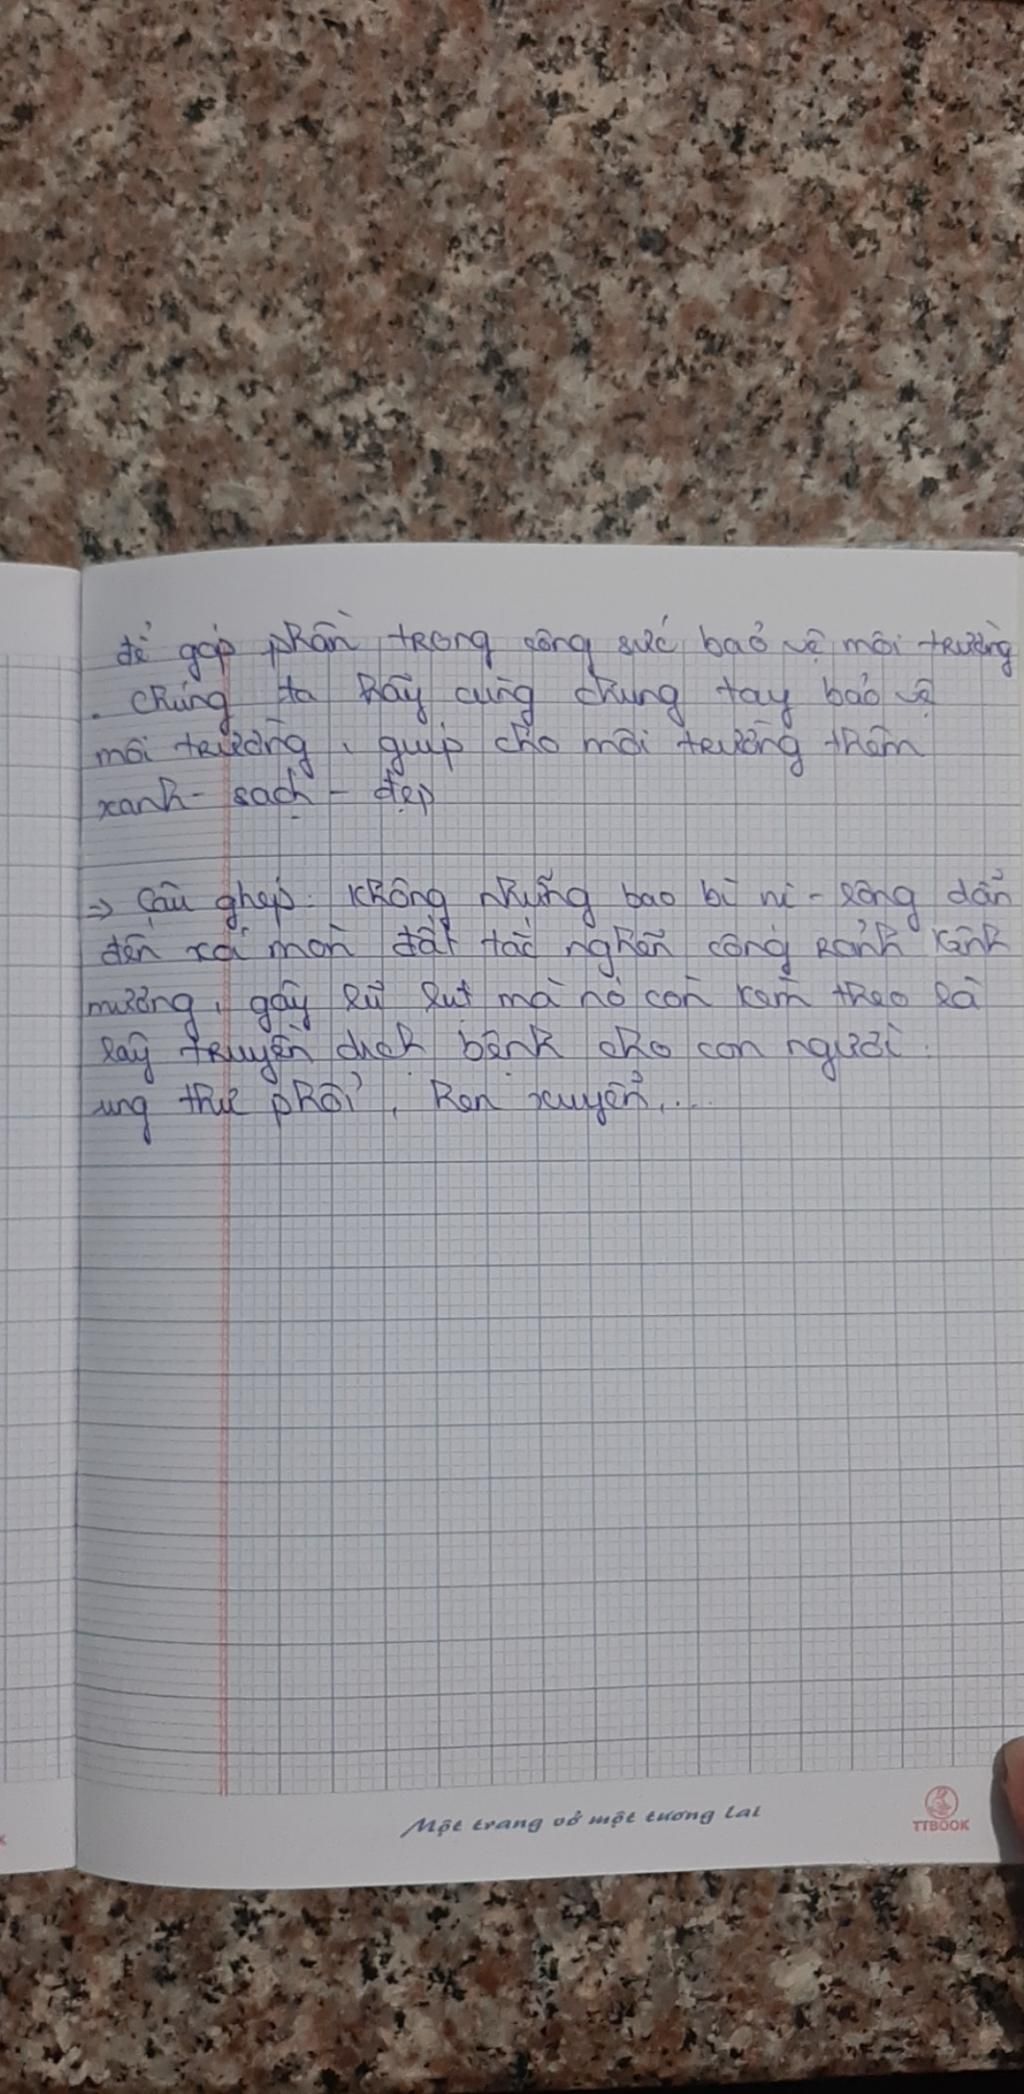 để góp phần trong công sức bảo vệ môi trường
. Chúng ta hãy cùng chung tay bảo vệ
môi trường, giúp cho môi trường thêm
xanh - sạch - đẹp
=> Câu ghép: Không những bao bì ni - lông dẫn
đến xói mòn đất tắc nghẽn cống rãnh kênh
mương, gây lũ lụt mà nó còn kèm theo là
lây truyền dịch bệnh cho con người:
ung thư phổi, hen xuyễn,...
Một trang vở một tương lai
TTBOOK